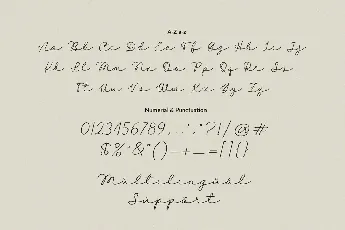 A-Z a-z
Aa Bb Cc Dd Ee Ff Gg Hh Ii Jj
Kk Ll Mm Nn Oo Pp Qq Rr Ss
Tt Uu Vv Ww Xx Yy Zz
Numeral & Punctuation
0123456789.,:;"?!/@#
$%^&*()-+_=[]{}
Multilingual
Support